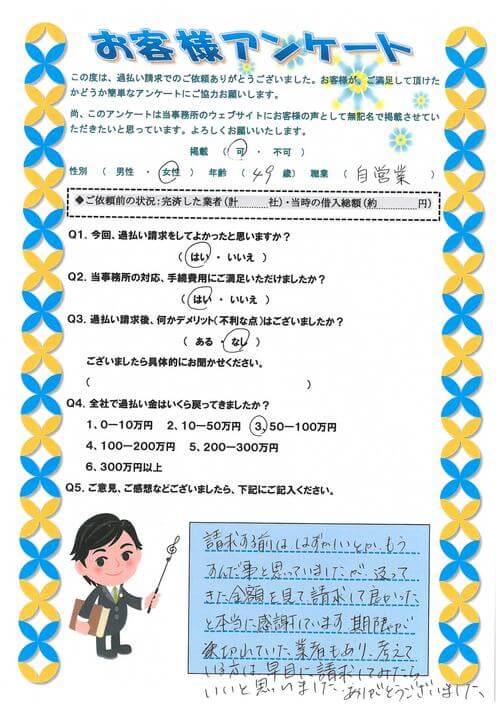 お客様アンケート
この度は、過払い請求でのご依頼ありがとうございました。お客様が、ご満足して頂けた
かどうか簡単なアンケートにご協力お願いします。
尚、このアンケートは当事務所のウェブサイトにお客様の声として無記名で掲載させてい
ただきたいと思っています。よろしくお願いいたします。
掲載 （ 可 ・ 不可 ）
性別 （ 男性 ・ 女性 ） 年齢 （ 49 歳） 職業 （ 自営業 ）
◆ご依頼前の状況：完済した業者（計 社）・当時の借入総額（約 円）
Q1. 今回、過払い請求をしてよかったと思いますか？
（ はい ・ いいえ ）
Q2. 当事務所の対応、手続費用にご満足いただけましたか？
（ はい ・ いいえ ）
Q3. 過払い請求後、何かデメリット（不利な点）はございましたか？
（ ある ・ なし ）
ございましたら具体的にお聞かせください。
（ ）
Q4. 全社で過払い金はいくら戻ってきましたか？
1、0－10万円 2、10－50万円 3、50－100万円
4、100－200万円 5、200－300万円
6、300万円以上
Q5. ご意見、ご感想などございましたら、下記にご記入ください。
請求する前は はずかしいとか、もう
すんだ事と思っていましたが 返って
きた金額を見て 請求して良かった
と本当に感謝しています 期限が
切れていた業者もあり、考えて
いる方は 早目に請求してみたら
いいと思いました ありがとうございました。